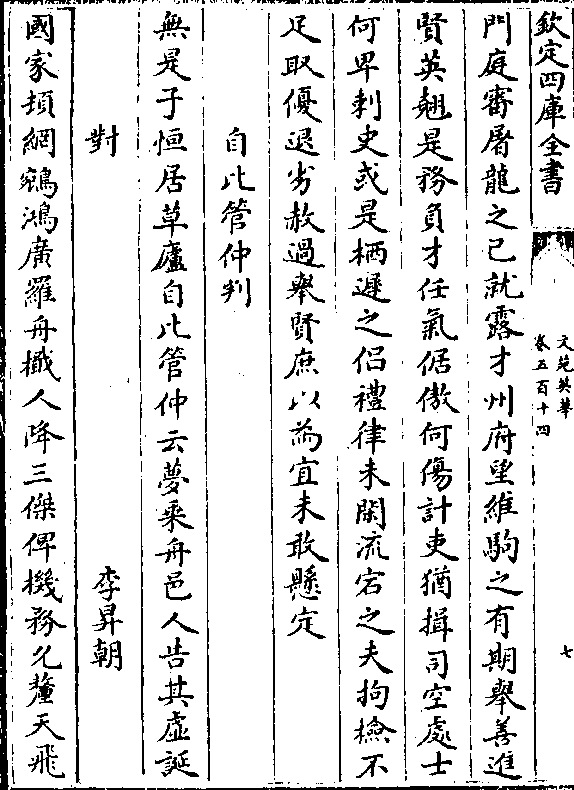 欽定四庫全書
文苑英華
卷五百十四
七
門庭審屠龍之已就露才州府望維駒之有期舉善進
賢英翹是務負才任氣倨傲何傷計吏猶揖司空處士
何卑刺史或是栖遲之侣禮律未閑流宕之夫拘檢不
足取優退劣赦過舉賢庶以為宜未敢懸定
自比管仲判
無是子恒居草廬自比管仲云夢乘舟邑人告其虛誕
對
李昇朝
國家頓網鵷鴻廣羅舟檝人降三傑俾機務允釐天飛